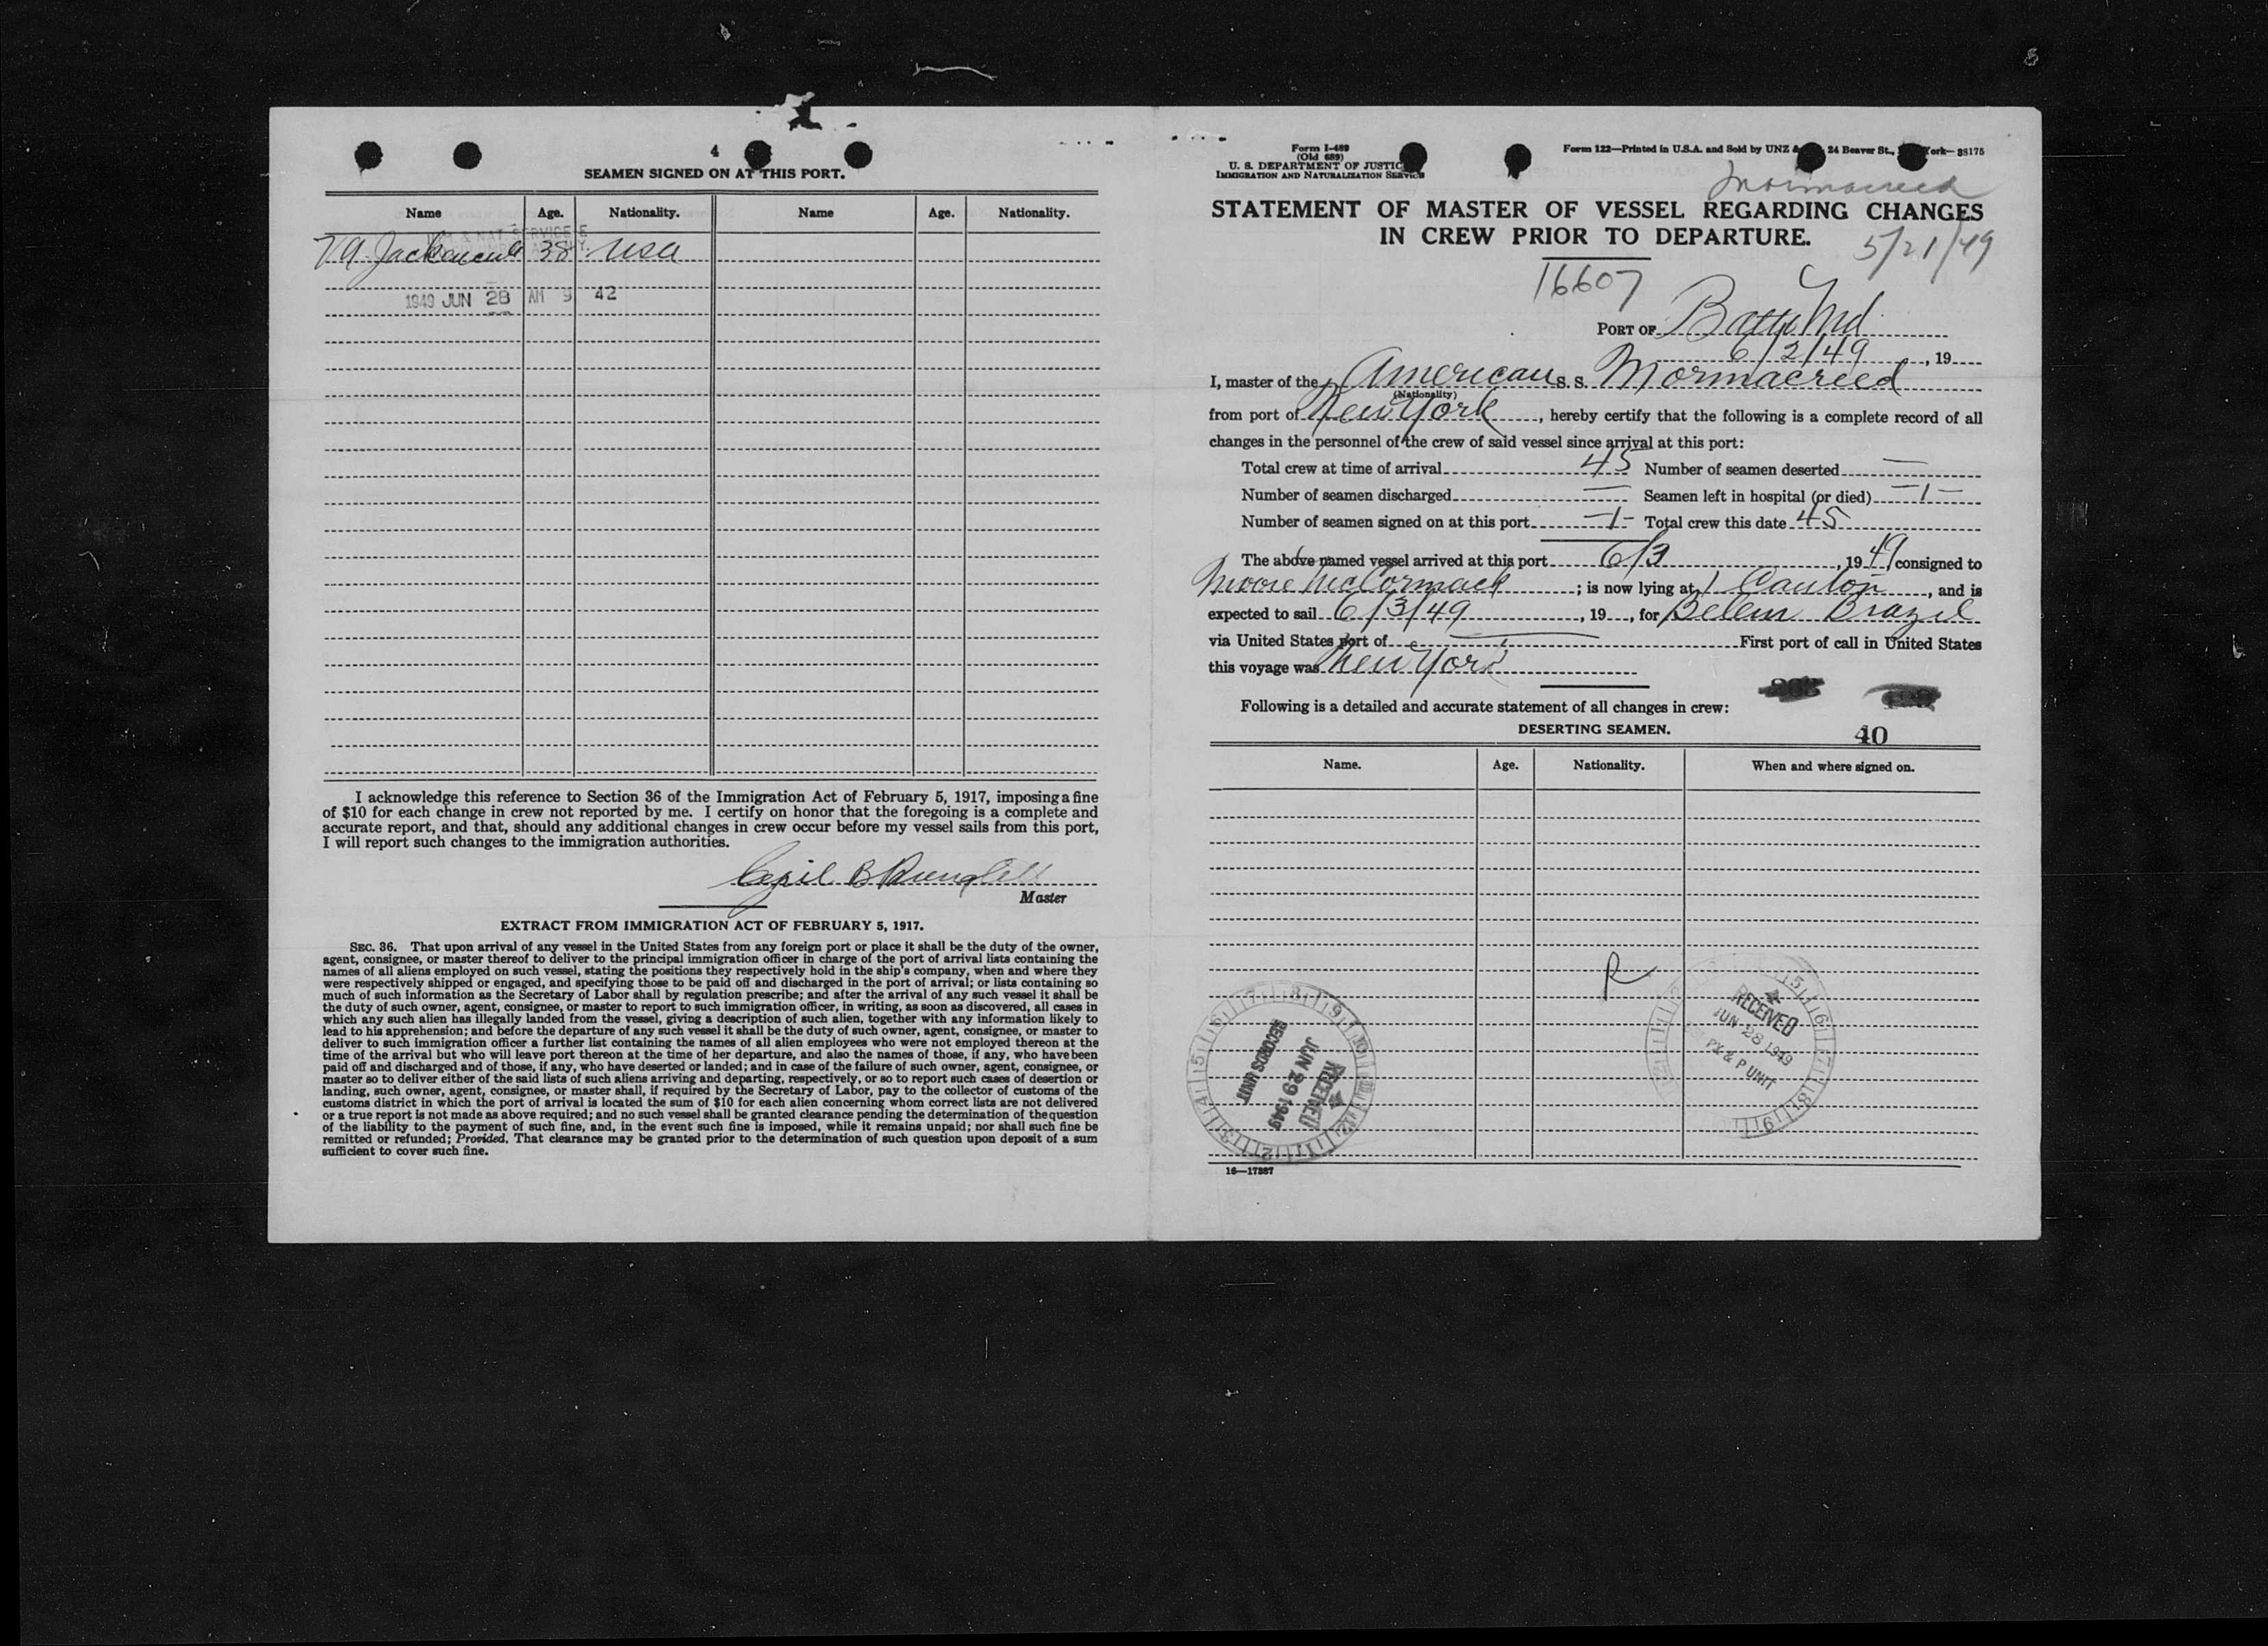 4
SEAMEN SIGNED ON AT THIS PORT.
Name Age. Nationality. Name Age. Nationality.
38 USA
1949 JUN 28 AM 9 42
I acknowledge this reference to Section 36 of the Immigration Act of February 5, 1917, imposing a fine
of $10 for each change in crew not reported by me. I certify on honor that the foregoing is a complete and
accurate report, and that, should any additional changes in crew occur before my vessel sails from this port,
I will report such changes to the immigration authorities.
Cyril B
Master
EXTRACT FROM IMMIGRATION ACT OF FEBRUARY 5, 1917.
SEC. 36. That upon arrival of any vessel in the United States from any foreign port or place it shall be the duty of the owner,
agent, consignee, or master thereof to deliver to the principal immigration officer in charge of the port of arrival lists containing the
names of all aliens employed on such vessel, stating the positions they respectively hold in the ship's company, when and where they
were respectively shipped or engaged, and specifying those to be paid off and discharged in the port of arrival; or lists containing so
much of such information as the Secretary of Labor shall by regulation prescribe; and after the arrival of any such vessel it shall be
the duty of such owner, agent, consignee, or master to report to such immigration officer, in writing, as soon as discovered, all cases in
which any such alien has illegally landed from the vessel, giving a description of such alien, together with any information likely to
lead to his apprehension; and before the departure of any such vessel it shall be the duty of such owner, agent, consignee, or master to
deliver to such immigration officer a further list containing the names of all alien employees who were not employed thereon at the
time of the arrival but who will leave port thereon at the time of her departure, and also the names of those, if any, who have been
paid off and discharged and of those, if any, who have deserted or landed; and in case of the failure of such owner, agent, consignee, or
master so to deliver either of the said lists of such aliens arriving and departing, respectively, or so to report such cases of desertion or
landing, such owner, agent, consignee, or master shall, if required by the Secretary of Labor, pay to the collector of customs of the
customs district in which the port of arrival is located the sum of $10 for each alien concerning whom correct lists are not delivered
or a true report is not made as above required; and no such vessel shall be granted clearance pending the determination of the question
of the liability to the payment of such fine, and, in the event such fine is imposed, while it remains unpaid; nor shall such fine be
remitted or refunded; Provided, That clearance may be granted prior to the determination of such question upon deposit of a sum
sufficient to cover such fine.
Form I-489
(Old 689)
U. S. DEPARTMENT OF JUSTICE
IMMIGRATION AND NATURALIZATION SERVICE
Form 122—Printed in U.S.A. and Sold by UNZ & 24 Beaver St., York—38175
Mormacreed
STATEMENT OF MASTER OF VESSEL REGARDING CHANGES
IN CREW PRIOR TO DEPARTURE.
5/21/49
16607
PORT OF Balto Md
6/2/49, 19
I, master of the American S. S. Mormacreed
(Nationality)
from port of New York, hereby certify that the following is a complete record of all
changes in the personnel of the crew of said vessel since arrival at this port:
Total crew at time of arrival 45 Number of seamen deserted —
Number of seamen discharged — Seamen left in hospital (or died) —1—
Number of seamen signed on at this port —1— Total crew this date 45
The above named vessel arrived at this port 6/3, 1949, consigned to
Moore McCormack; is now lying at 1 Canton, and is
expected to sail 6/3/49, 19, for Belem Brazil
via United States port of — First port of call in United States
this voyage was New York
Following is a detailed and accurate statement of all changes in crew:
DESERTING SEAMEN.
40
Name. Age. Nationality. When and where signed on.
R
RECEIVED
JUN 28 1949
P UNIT
RECEIVED
JUN 29 1949
RECORDS UNIT
16—17387